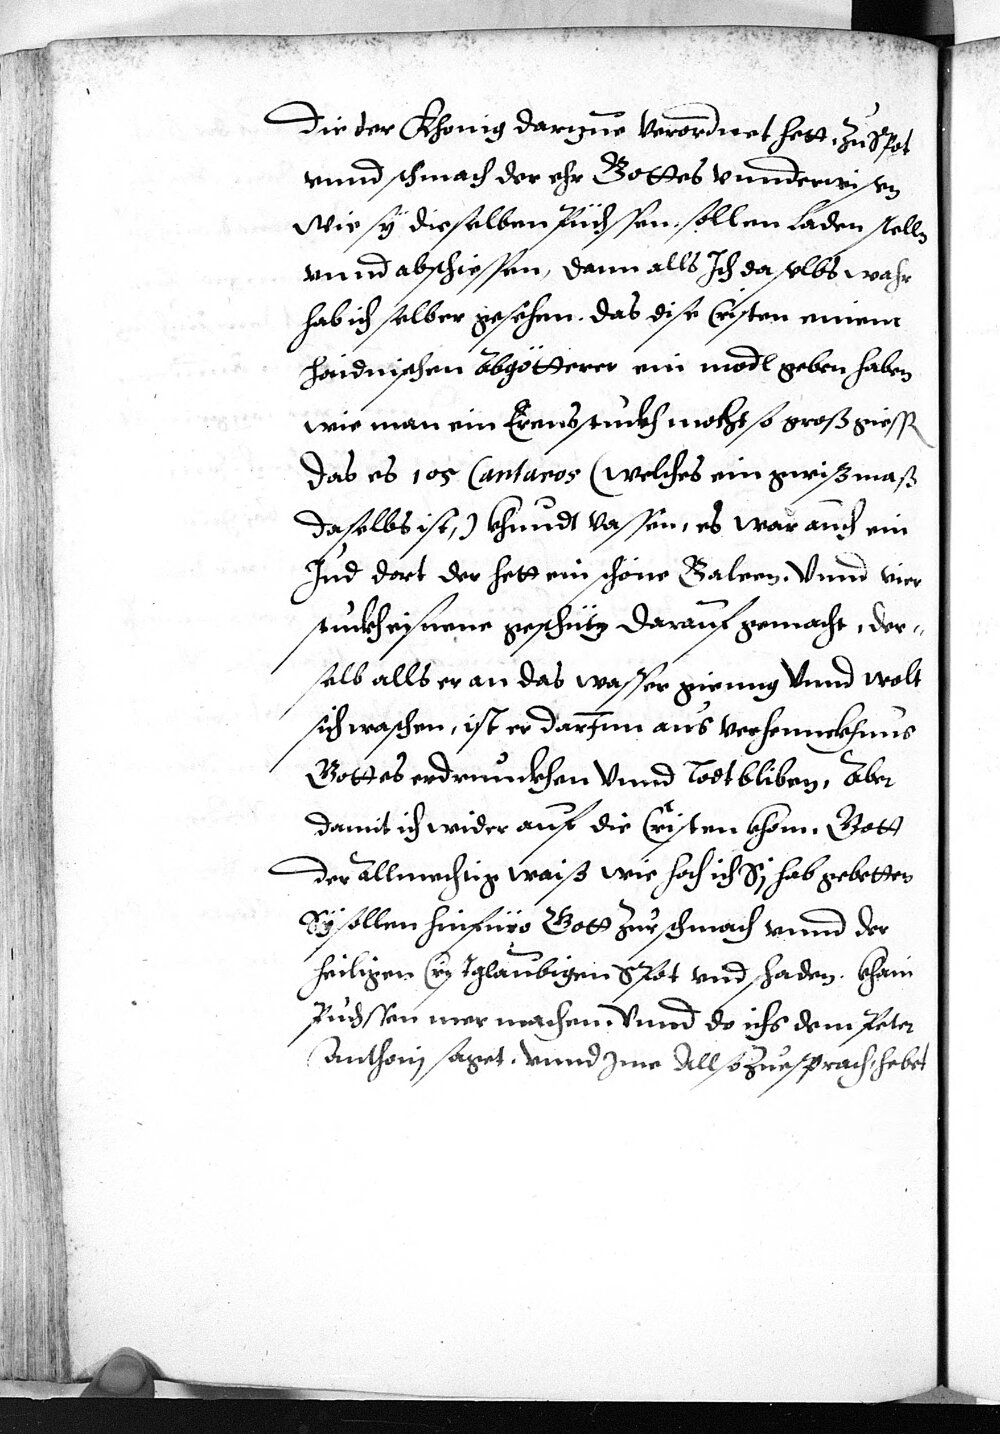 Die der Khonig darzue verordnet hett, zu Spot
vnnd schmach der ehr Gottes vnnderwisen
Wie sÿ dieselben Püchssen sollen laden stelln
vnnd abschiessen, dann alls Ich daselbs wahr
hab ich selber gesehen. das dise Cristen einem
haidnischen Abgötterer ein modl geben haben
wie man ein Erens stuckh mochte so groß giessn
das es 105 Cantaros (welches ein gwiß maß
daselbs ist,) khundt vassen, es war auch ein
Jud dort der hett ein schöne Galeen. Vnnd vier
stuckh eisnene geschütz darauf gemacht, der-
selb alls er an das wasser gienng Vnnd wolt
sich waschen, ist er darinn aus verhennckhnus
Gottes erdrunckhen Vnnd Todt bliben, Aber
damit ich wider auf die Cristen khom. Gott
der Allmechtig waiß wie hoch ich Sÿ hab gebetten
Sÿ sollen hinfüro Gott zur schmach vnnd der
heiligen Cristglaubigen Spot vnd schaden. khain
Püchssen mer machen. Vnnd do ichs dem Peter
Anthonj saget. vnnd Ime Allso zuesprach, hebet